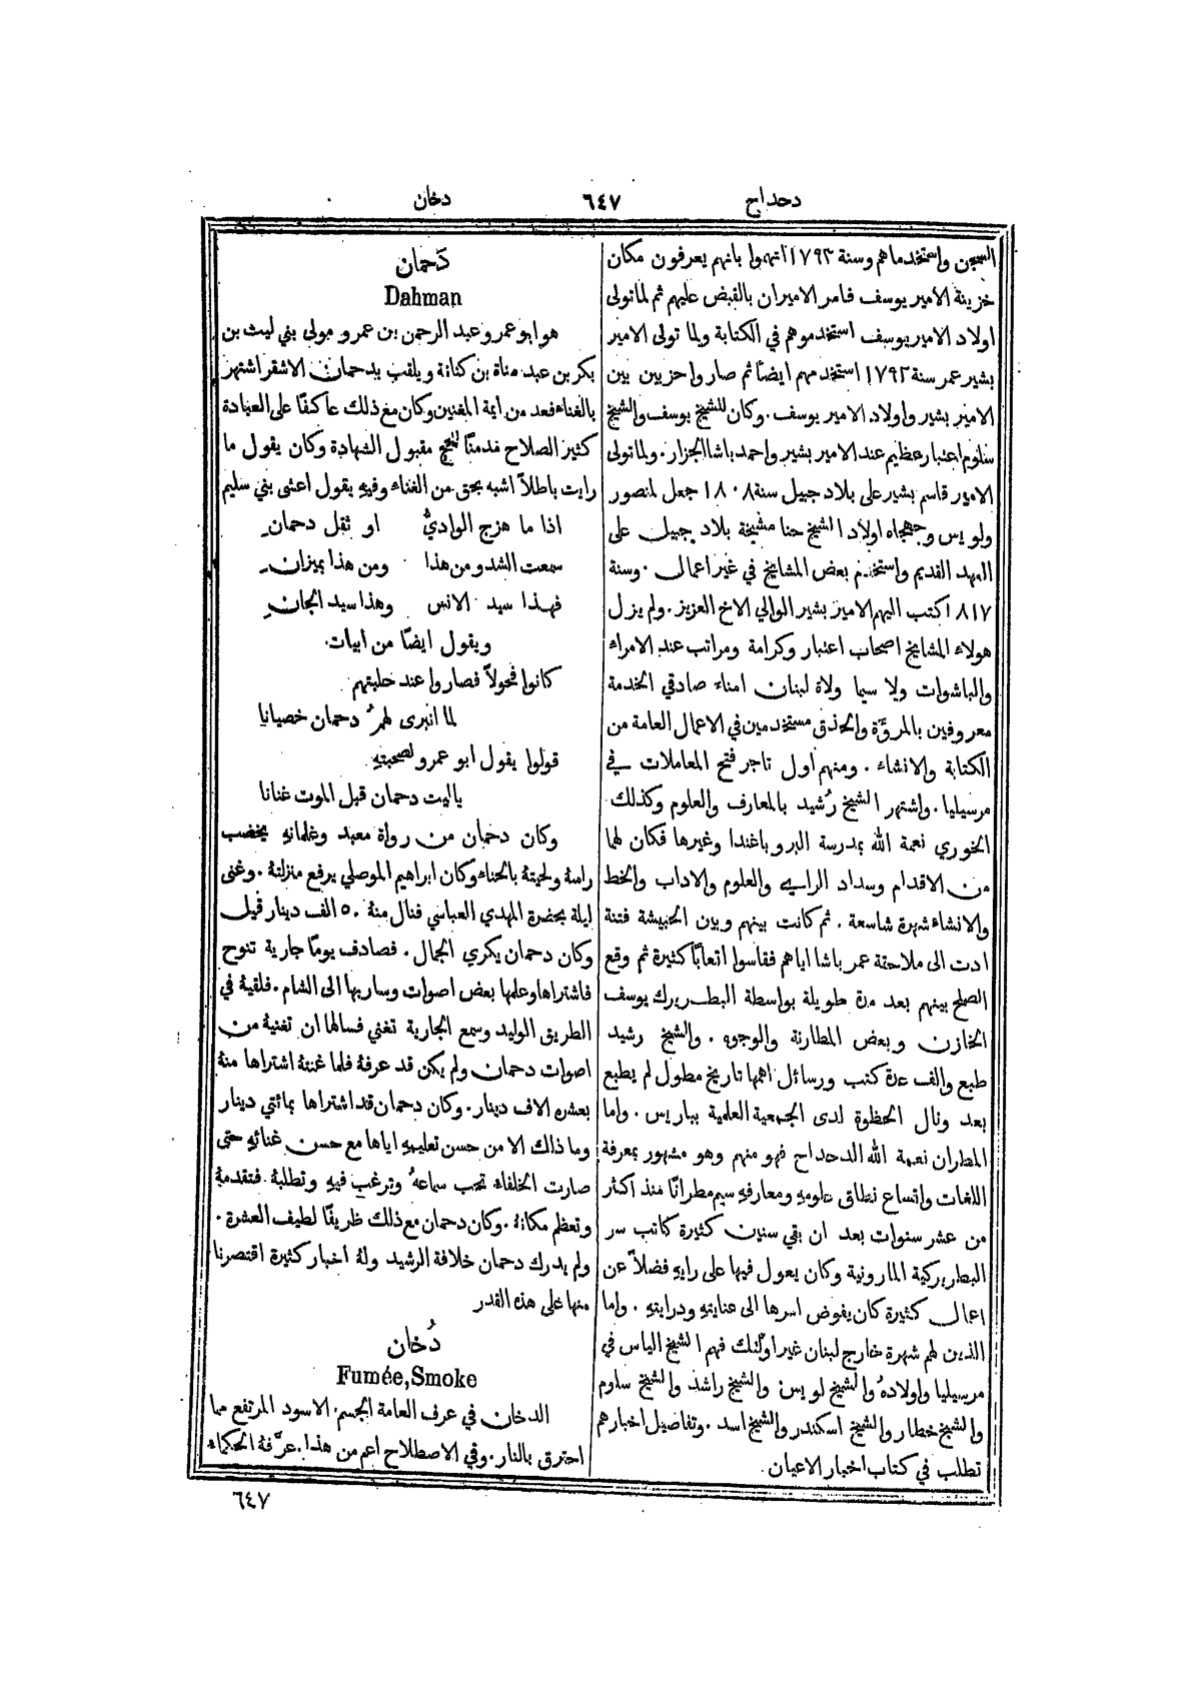 دحداح
٦٤٧
دخان
السجن واستخدماهم وسنة ١٧٩٣ اتهموا بانهم يعرفون مكان
خزينة الامير يوسف فامر الاميران بالقبض عليهم ثم لما تولى
اولاد الامير يوسف استخدموهم في الكتابة ولما تولى الامير
بشير عمر سنة ١٧٩٣ استخدمهم ايضاً ثم صاروا حزبين بين
الامير بشير واولاد الامير يوسف . وكان للشيخ يوسف والشيخ
سلوم اعتبار عظيم عند الامير بشير واحمد باشا الجزار . ولما تولى
الامير قاسم بشير على بلاد جبيل سنة ١٨٠٨ جعل لمنصور
ولويس وجهجاه اولاد الشيخ حنا مشيخة بلاد جبيل على
العهد القديم واستخدم بعض المشايخ في غير اعمال . وسنة
٨١٧ اكتب اليهم الامير بشير الوالي الاخ العزيز . ولم يزل
هولاء المشايخ اصحاب اعتبار وكرامة ومراتب عند الامراء
والباشوات ولا سيما ولاة لبنان امناء صادقي الخدمة
معروفين بالمروّة والحذق مستخدمين في الاعمال العامة من
الكتابة والانشاء . ومنهم اول تاجر فتح المعاملات في
مرسيليا . واشتهر الشيخ رُشيد بالمعارف والعلوم وكذلك
الخوري نعمة الله بمدرسة البروباغندا وغيرها فكان لهما
من الاقدام وسداد الراي والعلوم والاداب والخط
والانشاء شهرة شاسعة . ثم كانت بينهم وبين الحبيشة فتنة
ادت الى ملاحقة عمر باشا اياهم فقاسوا اتعاباً كثيرة ثم وقع
الصلح بينهم بعد مدة طويلة بواسطة البطريرك يوسف
الخازن وبعض المطارنة والوجوه . والشيخ رشيد
طبع والف عدة كتب ورسائل اهمها تاريخ مطول لم يطبع
بعد ونال الحظوة لدى الجمعية العلمية بباريس . واما
المطران نعمة الله الدحداح فهو منهم وهو مشهور بمعرفة
اللغات واتساع نطاق علومهِ ومعارفهِ سيم مطراناً منذ اكثر
من عشر سنوات بعد ان بقي سنين كثيرة كاتب سر
البطريركية المارونية وكان يعول فيها على رايهِ فضلاً عن
اعمال كثيرة كان يفوض امرها الى عنايتهِ ودرايتهِ . واما
الذين لهم شهرة خارج لبنان غير اولئك فهم الشيخ الياس في
مرسيليا واولادهُ والشيخ لويس والشيخ راشد والشيخ سلوم
والشيخ خطار والشيخ اسكندر والشيخ اسد . وتفاصيل اخبارهم
تطلب في كتاب اخبار الاعيان .
دَحمان
Dahman
هو ابو عمرو عبد الرحمن بن عمرو مولى بني ليث بن
بكر بن عبد مناة بن كنانة ويلقب بدحمان الاشقر اشتهر
بالغناء فعد من ايمة المغنين وكان مع ذلك عاكفاً على العبادة
كثير الصلاح مدمناً للحج مقبول الشهادة وكان يقول ما
رايت باطلاً اشبه بحق من الغناء وفيهِ يقول اعشى بني سليم
اذا ما هزج الواديُّ او ثقل دحمانِ
سمعت الشدو من هذا ومن هذا بميزانِ
فهذا سيد الانس وهذا سيد الجانِ
ويقول ايضاً من ابيات .
كانوا فحولاً فصاروا عند حلبتهم
لما انبرى لهمُ دحمان خصيانا
قولوا يقول ابو عمرو لصحبتهِ
ياليت دحمان قبل الموت غنانا
وكان دحمان من رواة معبد وغلمانهِ يخضب
راسهُ ولحيتهُ بالحناء وكان ابراهيم الموصلي يرفع منزلتهُ . وغنى
ليلة بحضرة المهدي العباسي فنال منهُ ٥٠ الف دينار قيل
وكان دحمان يكري الجمال . فصادف يوماً جارية تنوح
فاشتراها وعلمها بعض اصوات وسار بها الى الشام . فلقيهُ في
الطريق الوليد وسمع الجارية تغني فسالها ان تغنيهُ من
اصوات دحمان ولم يكن قد عرفهُ فلما غنتهُ اشتراها منهُ
بعشرة الاف دينار . وكان دحمان قد اشتراها بمائتي دينار
وما ذلك الا من حسن تعليمهِ اياها مع حسن غنائهِ حتى
صارت الخلفاء تحب سماعهُ وترغب فيهِ وتطلبهُ فتقدمهُ
وتعظم مكانهُ . وكان دحمان مع ذلك ظريفاً لطيف العشرة .
ولم يدرك دحمان خلافة الرشيد ولهُ اخبار كثيرة اقتصرنا
منها على هذه القدر
دُخان
Fumée, Smoke
الدخان في عرف العامة الجسم الاسود المرتفع مما
احترق بالنار . وفي الاصطلاح اعم من هذا . عرَّفهُ الحكماء
٦٤٧